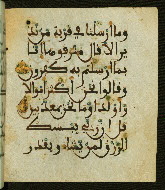 وما أرسلنا في قرية من نذ
ير إلا قال مترفوها إنا
بما أرسلتم به كفرون
وقالوا نحن أكثر أموالا
وأولدا وما نحن بمعذبين
قل إن ربي يبسط
الرزق لمن يشاء ويقدر